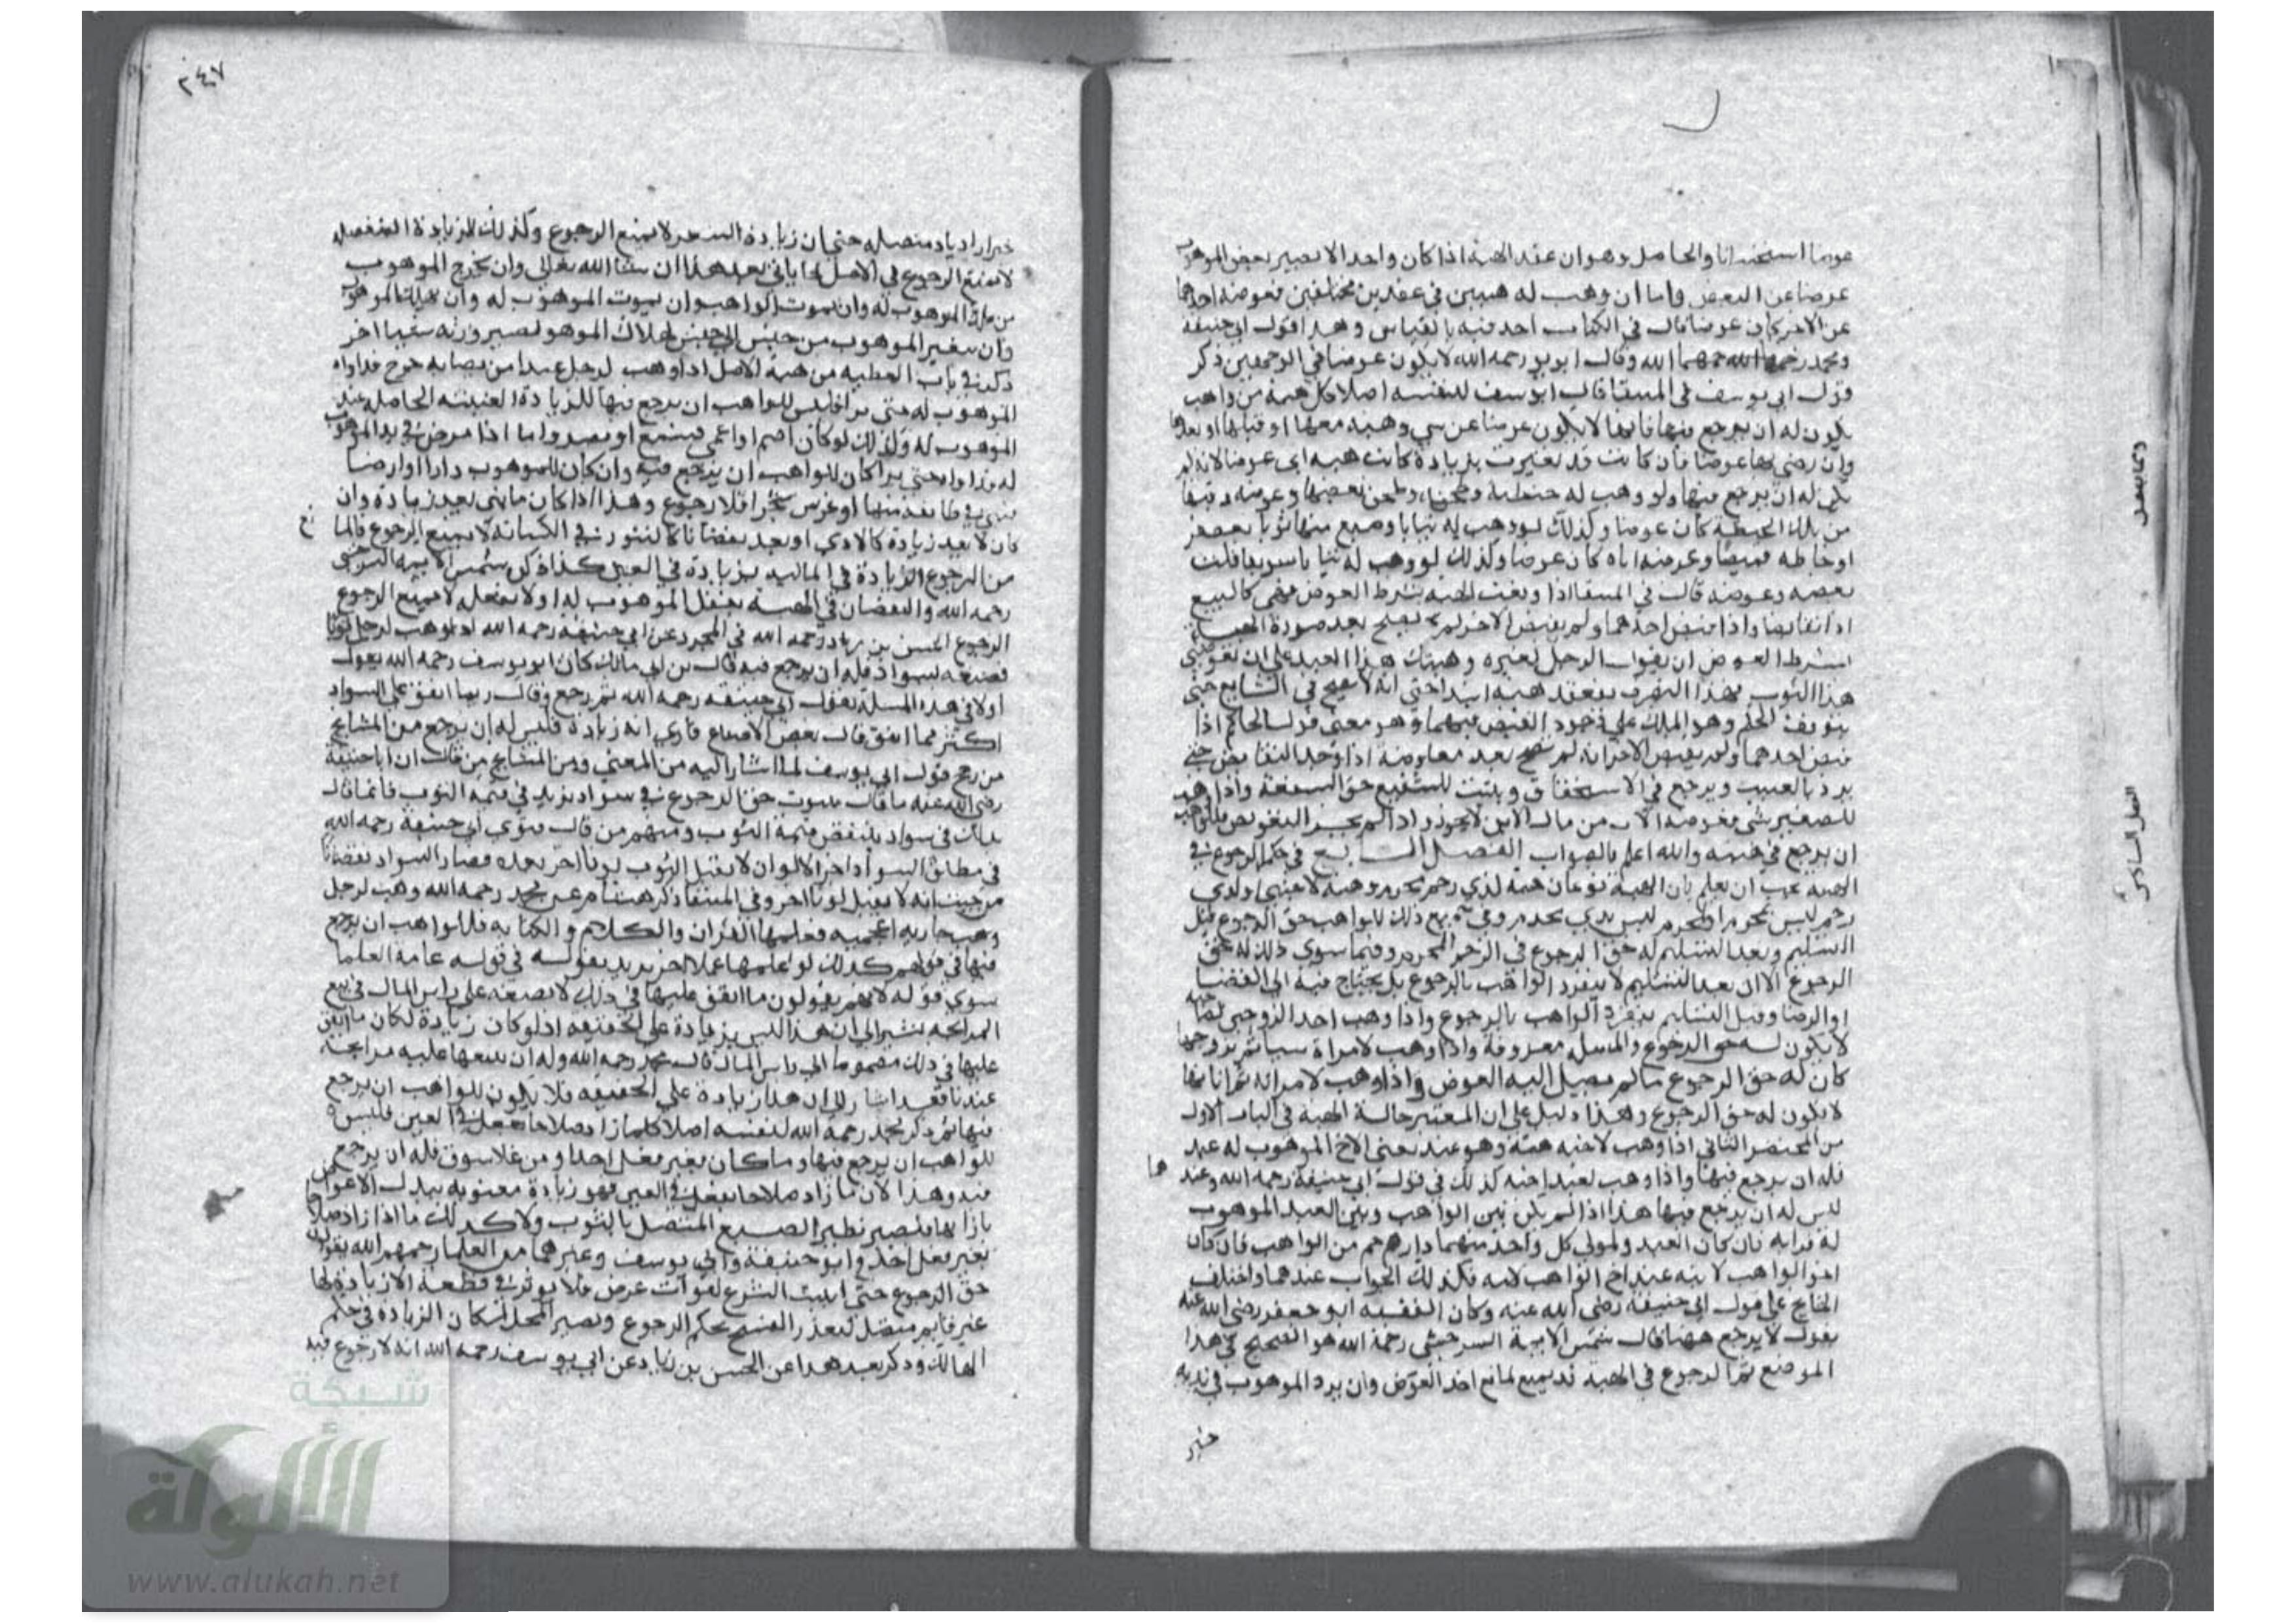 عوضا استحسانا والحاصل وهو ان عقد الهبة اذا كان واحدا لا يصير بعض الموهوب
عوضا عن البعض واما ان وهب له هبتين في عقدين مختلفين فعوضه احداهما
عن الاخر كان عوضا قال في الكتاب اخذ فيه بالقياس وهذا قول ابي حنيفة
ومحمد رحمهما الله وقال ابو يو رحمه الله لا يكون عوضا في الوجهين ذكر
قول ابي يوسف في المنتقا قال ابو يوسف لنفسه اصلا كل هبة من واهب
يكون له ان يرجع فيها فانها لا يكون عوضا عن شي وهبه معها او قبلها او بعدها
وان رضي بها عوضا فان كانت قد تغيرت بزيادة كانت هبه اي عوضا لانه لم
يكن له ان يرجع فيها ولو وهب له حنطة وطحن بعضها وعوضه دقيقا
من تلك الحنطة كان عوضا وكذلك لو وهب له ثيابا وصبغ منها ثوبا بعصفر
او خاطه قميصا وعوضه اياه كان عوضا وكذلك لو وهب له سويقا فلت
بعضه وعوضه قال في المنتقا اذا وقعت الهبة بشرط العوض فهي كالبيع
اذا تقابضا واذا قبض احدهما ولم يقبض الاخر لم يصح بعد صورة الهبة
بشرط العوض ان يقول الرجل لغيره وهبتك هذا العبد على ان تعوضني
هذا الثوب فهذا التصرف ينعقد هبة ابتدا حتى انه لا يصح في الشايع حتى
يتوقف الحكم وهو الملك على وجود القبض فيهما وهو معنى قول الحاكم اذا
قبض احدهما ولم يقبض الاخر انه لم يصح بعد معاوضة اذا وجد التقابض حتى
يرد بالعيب ويرجع في الاستحقاق ويثبت للشفيع حق الشفعة واذا وهب
للصغير شي فعوضه الاب من مال الابن لا يجوز واذا لم يجز التعويض فللواهب
ان يرجع في هبته والله اعلم بالصواب الفصل السابع في حكم الرجوع في
الهبة يجب ان يعلم بان الهبة نوعان هبة لذي رحم محرم وهبة لاجنبي او لذي
رحم ليس بمحرم او لمحرم ليس بذي رحم وفي جميع ذلك للواهب حق الرجوع قبل
التسليم وبعد التسليم له حق الرجوع في الرحم المحرم وفيما سوى ذلك له حق
الرجوع الا ان بعد التسليم لا ينفرد الواهب بالرجوع بل يحتاج فيه الى القضا
او الرضا وقبل التسليم ينفرد الواهب بالرجوع واذا وهب احد الزوجين لصاحبه
لا يكون له حق الرجوع والمسله معروفة واذا وهب لامراة شيا ثم تزوجها
كان له حق الرجوع ما لم يصل اليه العوض واذا وهب لامراته ثم ابانها
لا يكون له حق الرجوع وهذا دليل على ان المعتبر حالة الهبة في الباب الاول
من المختصر الثاني اذا وهب لاخيه هبة وهو عبد يعني الاخ الموهوب له عبد
فله ان يرجع فيها واذا وهب لعبد اخيه كذلك في قول ابي حنيفة رحمه الله وعند
هما
ليس له ان يرجع فيها هذا اذا لم يكن بين الواهب وبين العبد الموهوب
له قرابه فان كان العبد والمولى كل واحد منهما ذا رحم من الواهب فان كان
اخو الواهب لابيه عند اخ الواهب لامه فكذلك الجواب عندهما واختلف
المشايخ على قول ابي حنيفة رضي الله عنه وكان الفقيه ابو جعفر رضي الله عنه
يقول لا يرجع ههنا قال شمس الايمة السرخسي رحمه الله هو الصحيح في هذا
الموضع ثم الرجوع في الهبة قد يمتنع لمانع اخذ العوض وان يرد الموهوب في
٢٤٧
لا تمنع الرجوع في الاصل لما ياتي بعد هذا ان شا الله تعالى وان يخرج الموهوب
من ملك الموهوب له وان يموت الواهب وان يموت الموهوب له وان يهلك الموهوب
وان يتغير الموهوب من جنس الى جنس
ذكر في باب العطية من هبة الاصل اذا وهب لرجل عبدا مريضا به جرح فداواه
الموهوب له حتى برا فليس للواهب ان يرجع فيها للزيادة العينية الحاصلة عند
الموهوب له وكذلك لو كان اصم او اعمى فسمع او بصر واما اذا مرض في يد الموهوب
له فداواه حتى برا كان للواهب ان يرجع فيه وان كان الموهوب دارا او ارضا
فبنى في طايفة منها او غرس شجرا فلا رجوع وهذا اذا كان ما بنى يعد زيادة وان
كان لا يعد زيادة كالاري او يعد نقصانا كالتنور في الكاشانة لا يمنع الرجوع فالمانع
من الرجوع الزيادة في المالية بزيادة في العين كذا ذكر شمس الايمة السرخسي
رحمه الله والنقصان في الهبة بفعل الموهوب له او لا بفعله لا يمنع الرجوع
الرجوع الحسن بن زياد رحمه الله في المجرد عن ابي حنيفة رحمه الله اذا وهب لرجل ثوبا
فصبغه بسواد فله ان يرجع فيه قال بن ابي مالك كان ابو يوسف رحمه الله يقول
اولا في هذه المسلة بقول ابي حنيفة رحمه الله ثم رجع وقال ربما انفق على السواد
اكثر مما انفق قال بعض الاصباغ فارى انه زيادة فليس له ان يرجع من المشايخ
من رجح قول ابي يوسف لما اشار اليه من المعنى ومن المشايخ من قال ان ابا حنيفة
رضي الله عنه ما قال بثبوت حق الرجوع في سواد يزيد في قيمة الثوب فانما قال
ذلك في سواد ينقص قيمة الثوب ومنهم من قال سوى ابي حنيفة رحمه الله
في مطلق السواد اخر الالوان لا يقبل الثوب لونا اخر بعده فصار السواد نقصانا
من حيث انه لا يقبل لونا اخر وفي المنتقا ذكر هشام عن محمد رحمه الله وهب لرجل
وهب جاريه اعجميه فعلمها القران والكلام والكتابه فللواهب ان يرجع
فيها في قولهم كذلك لو علمها عملا اخر يريد بقوله في قوله عامة العلما
سوى قوله لانهم يقولون ما انفق عليها في ذلك لا يضعه على راس المال في بيع
المرابحه تشير الى ان هذا ليس بزيادة على الحقيقه اذ لو كان زيادة لكان ما انفق
عليها في ذلك مضموما الى راس المال قال محمد رحمه الله وله ان يبيعها عليه مرابحة
عندنا فقد اشار الى ان هذا زيادة على الحقيقه فلا يكون للواهب ان يرجع
فيها ثم ذكر محمد رحمه الله لنفسه اصلا كلما زاد صلاحا بفعل في العين فليس
للواهب ان يرجع فيها وما كان بغير فعل احد او من غلا سوق فله ان يرجع
فيه وهذا لان ما زاد صلاحا بفعل في العين فهو زيادة معنويه يبذل الاعواض
بازايها فتصير نظير الصبغ المتصل بالثوب ولا كذلك ما اذا زاد صلاحا
بغير فعل احد وابو حنيفة وابي يوسف وغيرهما من العلما رحمهم الله يقولون
حق الرجوع حتى اثبت الشرع لفوات عرض فلا يوثر في قطعه الا زيادة لها
عين قايم متصل لتعذر الفسخ بحكم الرجوع وتصير المحل لمكان الزيادة في حكم
الهالك وذكر بعد هذا عن الحسن بن زياد عن ابي يوسف رحمه الله انه لا رجوع فيه
شبكة
الألوكة
www.alukah.net